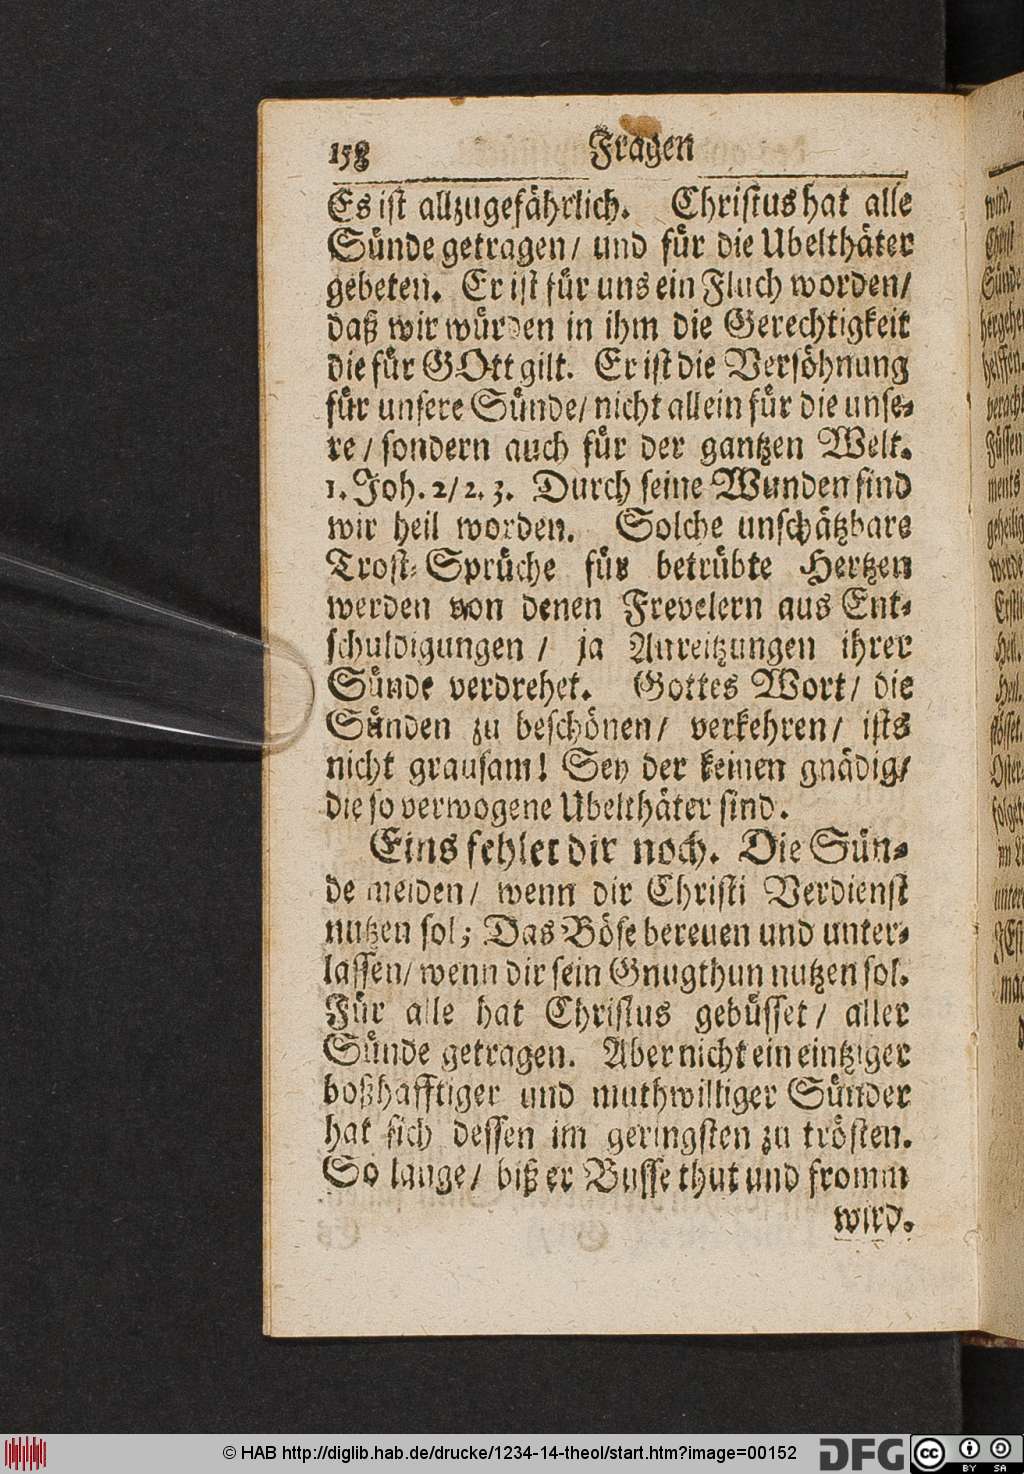 158 Fragen
Es ist allzugefährlich. Christus hat alle
Sünde getragen/ und für die Ubelthäter
gebeten. Er ist für uns ein Fluch worden/
daß wir würden in ihm die Gerechtigkeit
die für GOtt gilt. Er ist die Versöhnung
für unsere Sünde/ nicht allein für die unse-
re/ sondern auch für der gantzen Welt.
1. Joh. 2/2. 3. Durch seine Wunden sind
wir heil worden. Solche unschätzbare
Trost-Sprüche für betrübte Hertzen
werden von denen Frevelern aus Ent-
schuldigungen/ ja Anreitzungen ihrer
Sünde verdrehet. Gottes Wort/ die
Sünden zu beschönen/ verkehren/ ists
nicht grausam! Sey der keinen gnädig/
die so verwogene Ubelthäter sind.
Eins fehlet dir noch. Die Sün-
de meiden/ wenn dir Christi Verdienst
nutzen sol; Das Böse bereuen und unter-
lassen/ wenn dir sein Gnugthun nutzen sol.
Für alle hat Christus gebüsset/ aller
Sünde getragen. Aber nicht ein eintziger
boßhafftiger und muthwilliger Sünder
hat sich dessen im geringsten zu trösten.
So lange/ biß er Busse thut und fromm
wird.
© HAB http://diglib.hab.de/drucke/1234-14-theol/start.htm?image=00152
DFG
cc BY SA